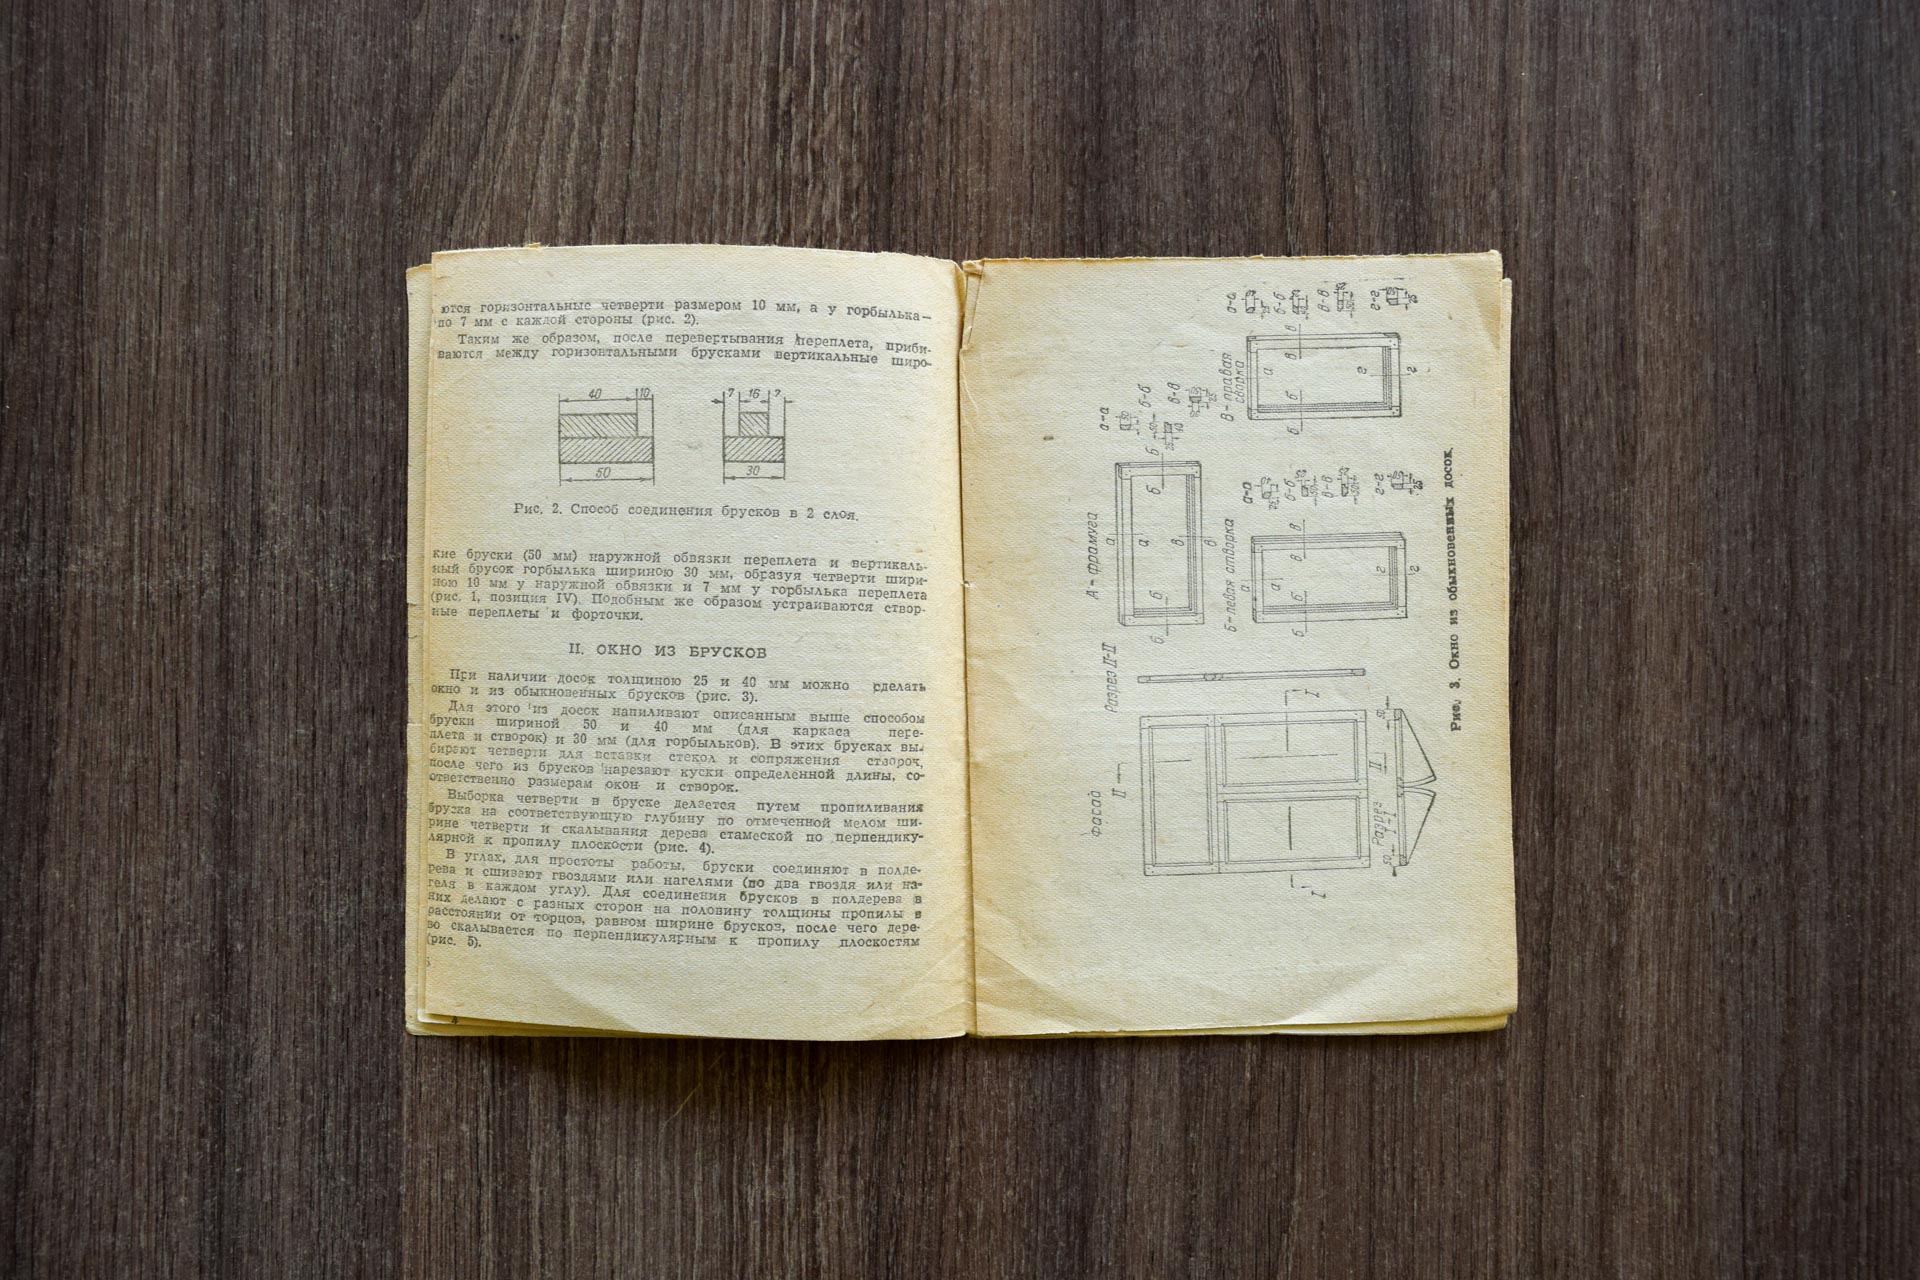 ются горизонтальные четверти размером 10 мм, а у горбылька—
по 7 мм с каждой стороны (рис. 2).
Таким же образом, после перевертывания переплета, приби-
ваются между горизонтальными брусками вертикальные широ-
40 10
50
7 16 7
30
Рис. 2. Способ соединения брусков в 2 слоя.
кие бруски (50 мм) наружной обвязки переплета и вертикаль-
ный брусок горбылька шириною 30 мм, образуя четверти шири-
ною 10 мм у наружной обвязки и 7 мм у горбылька переплета
(рис. 1, позиция IV). Подобным же образом устраиваются створ-
ные переплеты и форточки.
II. ОКНО ИЗ БРУСКОВ
При наличии досок толщиною 25 и 40 мм можно сделать
окно и из обыкновенных брусков (рис. 3).
Для этого из досок напиливают описанным выше способом
бруски шириной 50 и 40 мм (для каркаса пере-
плета и створок) и 30 мм (для горбыльков). В этих брусках вы-
бирают четверти для вставки стекол и сопряжения створок,
после чего из брусков нарезают куски определенной длины, со-
ответственно размерам окон и створок.
Выборка четверти в бруске делается путем пропиливания
бруска на соответствующую глубину по отмеченной мелом ши-
рине четверти и скалывания дерева стамеской по перпендику-
лярной к пропилу плоскости (рис. 4).
В углах, для простоты работы, бруски соединяют в полде-
рева и сшивают гвоздями или нагелями (по два гвоздя или на-
геля в каждом углу). Для соединения брусков в полдерева в
них делают с разных сторон на половину толщины пропилы в
расстоянии от торцов, равном ширине брусков, после чего дере-
во скалывается по перпендикулярным к пропилу плоскостям
(рис. 5).
4
Фасад
II
I
I
Разрез II-II
Разрез
I-I
50
II
50
А - фрамуга
а
а
б
б
б
б
в
в
а-а
б-б
в-в
Б - левая створка
а
а
б
б
в
в
г
г
а-а
б-б
в-в
г-г
25
В - правая
створка
а
б
б
в
в
г
г
а-а
б-б
в-в
г-г
25
Рис. 3. Окно из обыкновенных досок.